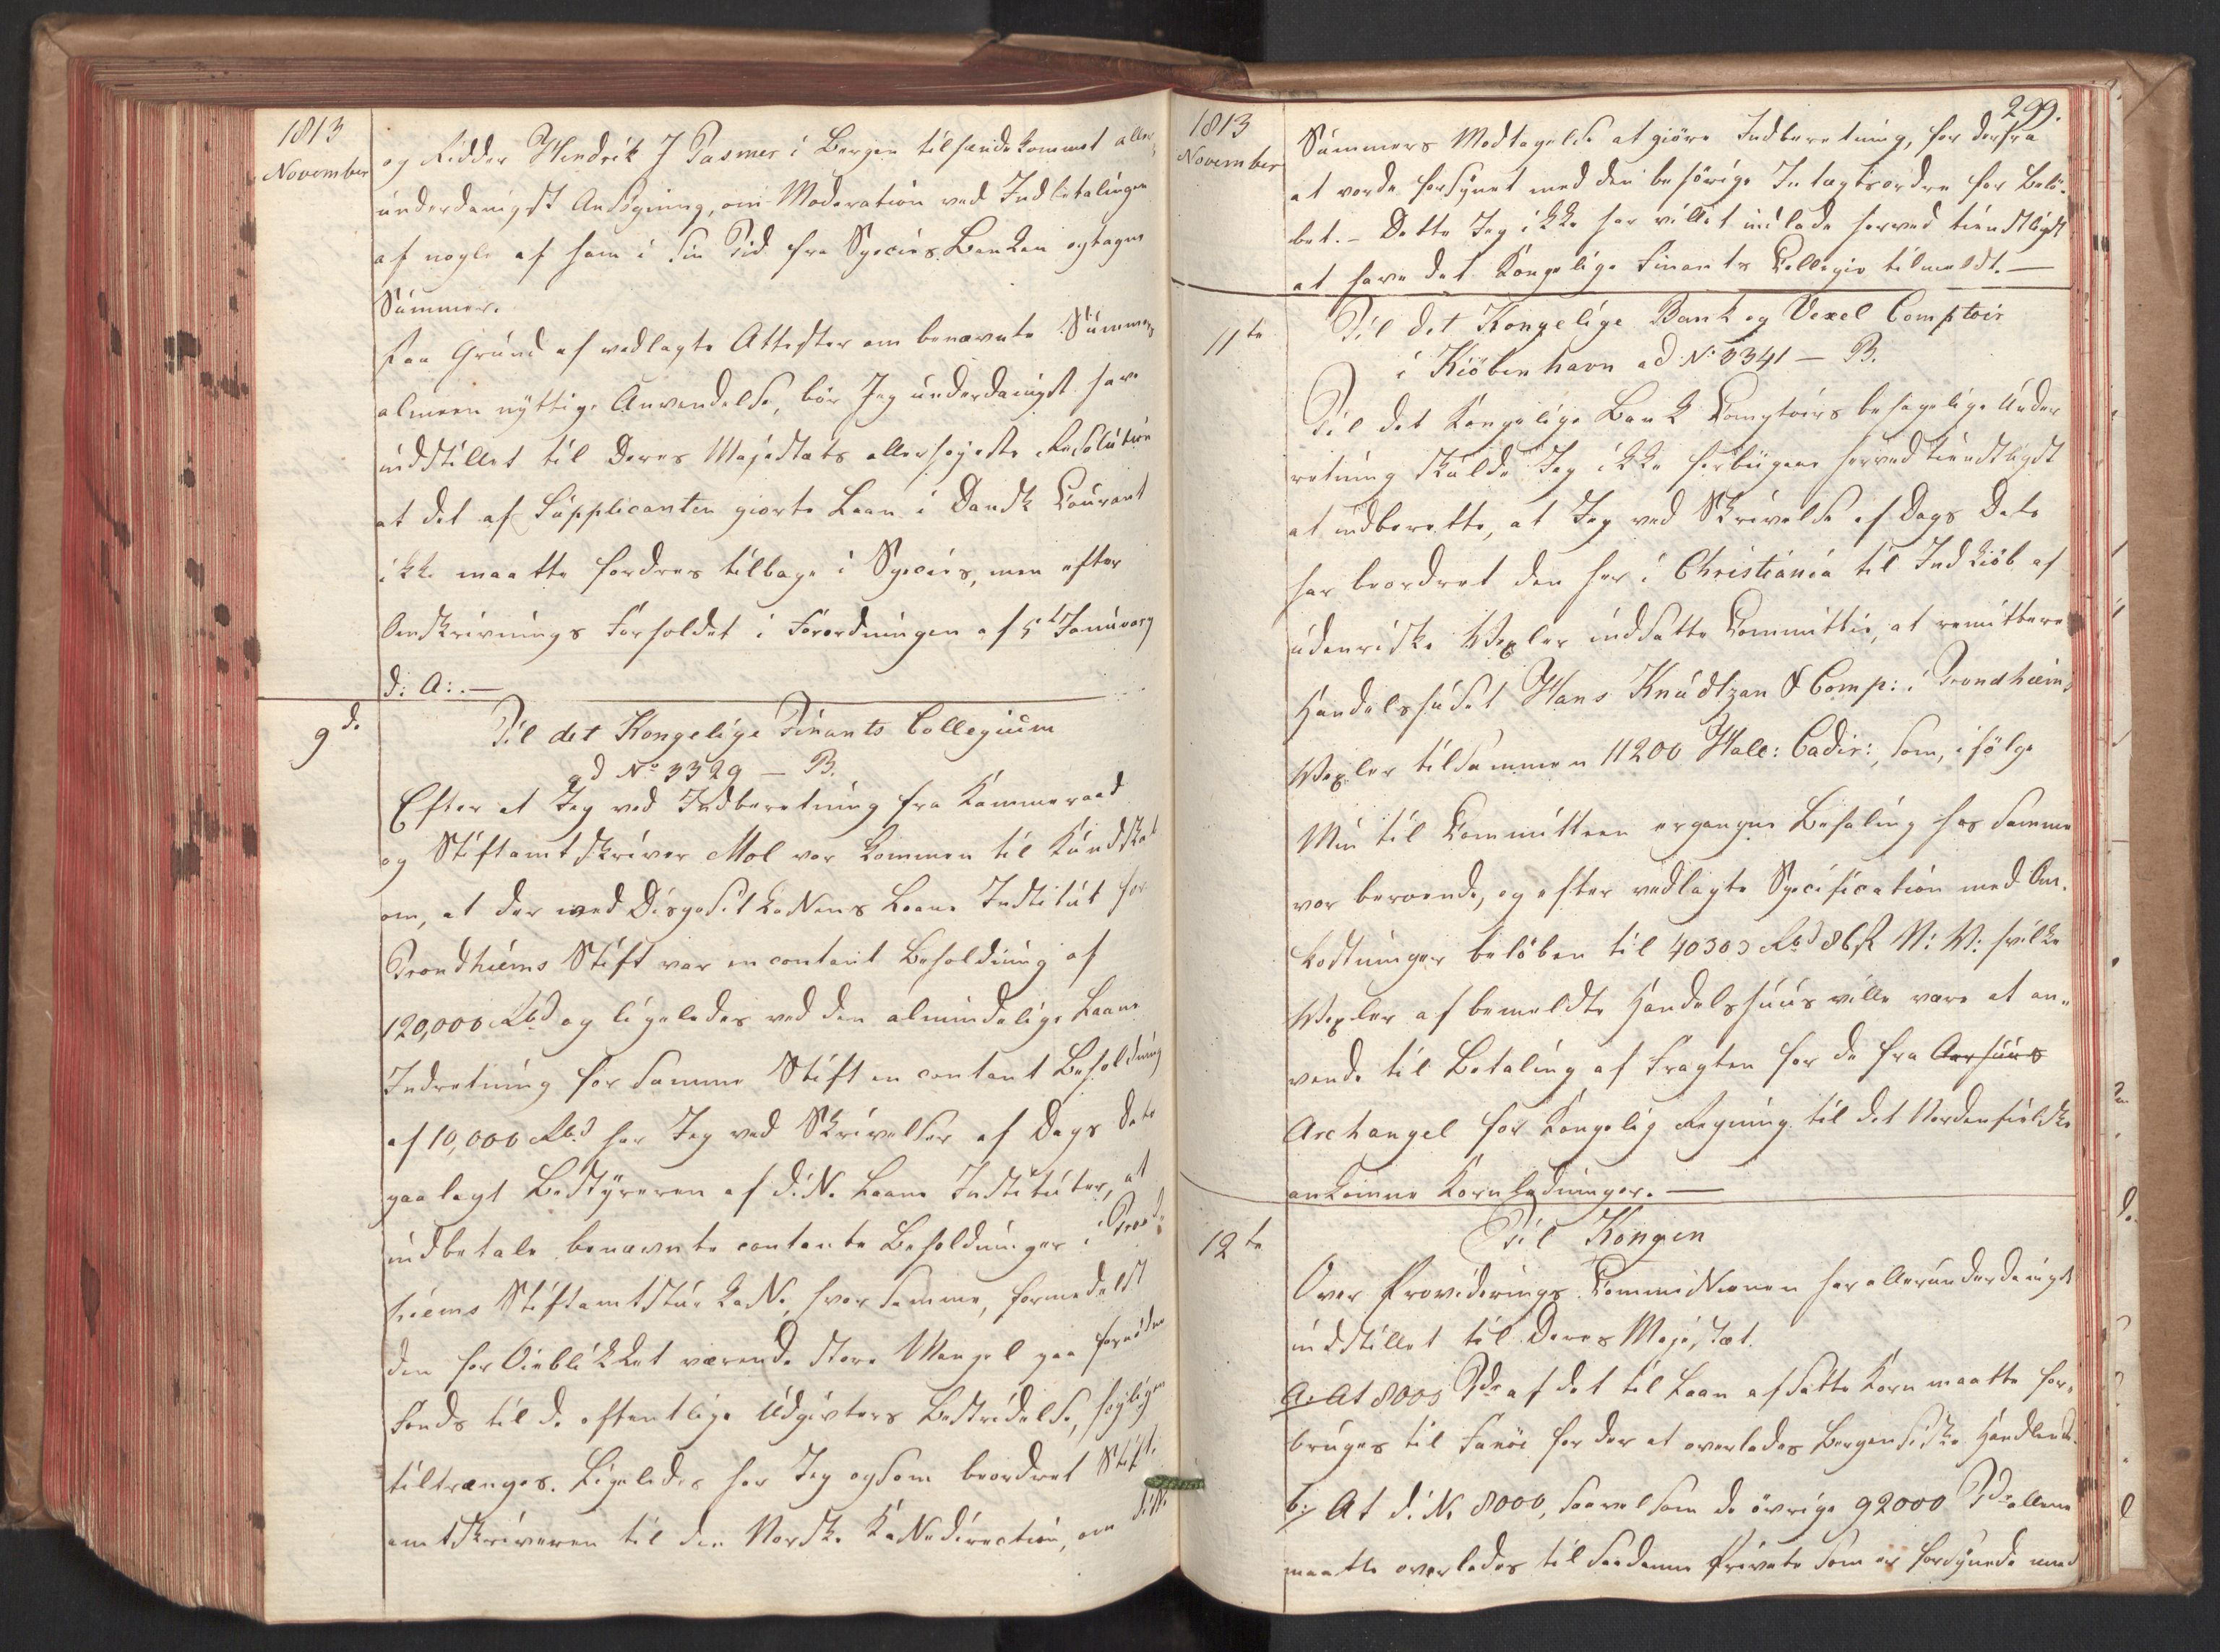 1813
November
og Ridder Hendrik J Fasmer i Bergen tilhændekommet aller,
underdanigst Ansøgning, om Moderation ved Indbetalingen
af nogle af ham i sin Tid fra Species Banken optagne
Summer.
Paa Grund af vedlagte Attester om benævnte Summers
almeen nyttige Anvendelse, bør Jeg underdanigst have
indstillet til Deres Majestæts allerhøieste Resolution
at det af Supplicanten giorte Laan i Dansk Courant
ikke maatte fordres tilbage i Species, men efter
Omskrivnings Forholdet i Forordningen af 5t Januvary
d: A:. —
9de
Til det Kongelige Finants Collegium
ad No 3329 — B.
Efter at Jeg ved Indberetning fra Kammeraad
og Stiftamtskriver Mol var kommen til Kundskab
om, at der ved Disposit Kassens Laane Institut for
Trondhiems Stift var en contant Beholdning af
120,000 Rbd og ligeledes ved den almindelige Laane
Indretning for samme Stift en contant Beholdning
af 10,000 Rbd har Jeg ved Skrivelser af Dags Dato
paalagt Bestyreren af d: N. Laane Instituter, at
indbetale benævnte contante Beholdninger i Trond,
hiems Stiftamtstue Kasse, hvor samme, formedelst
den for Øieblikket værende store Mangel paa fornødne
Fonds til de offentlige Udgivters Bestridelse, høyligen
tiltrænges. Ligeledes har Jeg ogsom beordret Stift,
amtskriveren til den Norske Kassedirection, om disse
299.
1813
November
Summers Modtagelse at giøre Indberetning, for derfra
at vorde forsynet med den behørige Intægtsordre for Belø,
bet. — Dette Jeg ikke har villet undlade herved tienstligst
at have det Kongelige Finants Collegio tilmeldt. —
11te
Til det Kongelige Bank og Vexel Comptoir
i Kiøbenhavn ad No 3341 — B.
Til det Kongelige Bank Comptoirs behagelige Under
retning skulde Jeg ikke forbigaae herved tienstligst
at indberette, at Jeg ved Skrivelse af Dags Dato
har beordret den her i Christiania til Indkiøb af
udenriske Vexler indsatte Committee, at remittere
Handelshuset Hans Knudtzon & Comp: i Trondhiem
Vexler tilsammen 11200 Hall: Cadir:, som, ifølge
Min til Committeen ergangne Befaling hos samme
var beroende, og efter vedlagte Specification med Om,
kostninger beløben til 40303 Rbd 86 s N: V: hvilke
Vexler af bemeldte Handelshuus ville være at an,
vende til Betaling af Fragten for de fra Aarhuus
Archangel for Kongelig Regning til det Nordenfieldske
ankomne Kornladninger. —
12te
Til Kongen
Over Provideringscommissionen har allerunderdanigst
indstillet til Deres Majestæt.
a. At 8000 Tdr af det til Laan afsatte Korn maatte for,
bruges til Fanøe for der at overlades Bergensiske Handlende.
b:, At d: N. 8000, saavelsom de øvrige 92000 Tdr allene
maatte overlades til saadanne Private som er forsynede med